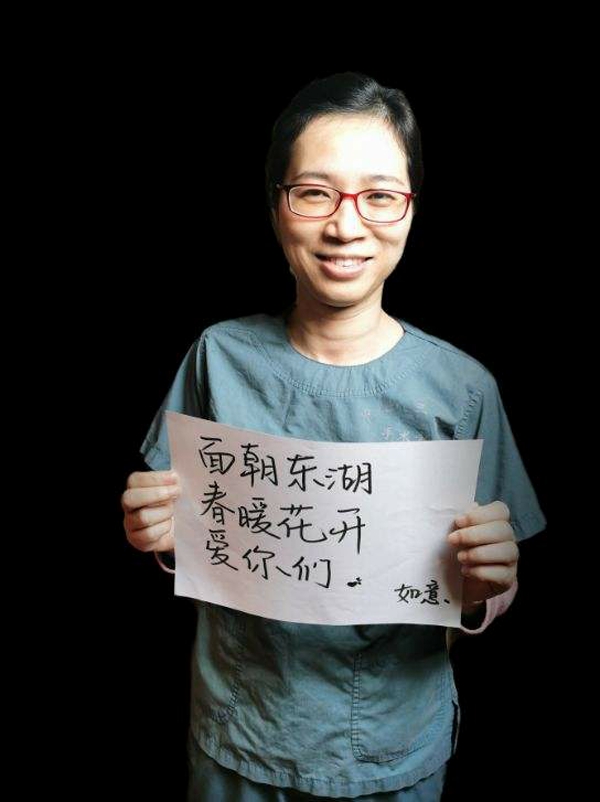 面朝东湖
春暖花开
爱你们。
如意、